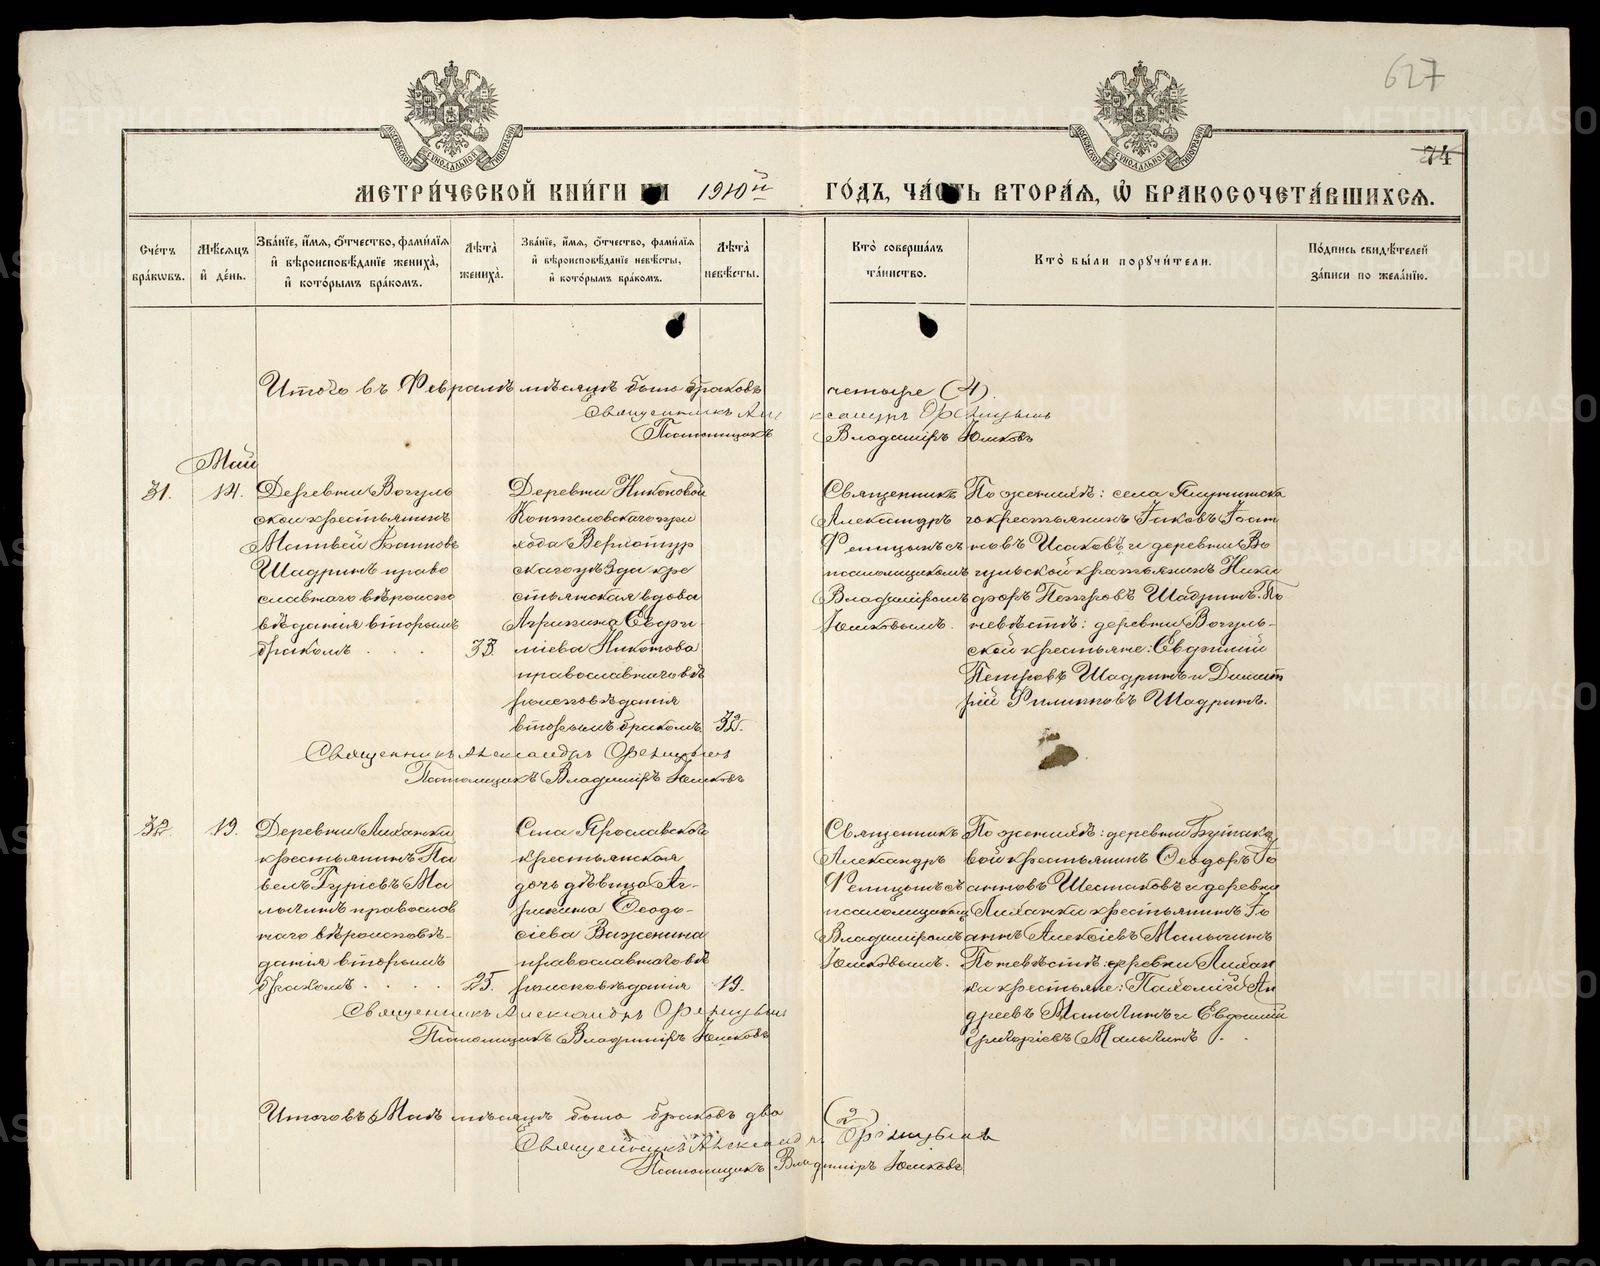 627
74
МЕТРИ́ЧЕСКОЙ КНИ́ГИ НА 1910й ГО́ДЪ, ЧА́СТЬ ВТОРА́Я, Ѿ БРАКОСОЧЕТА́ВШИХСЯ.
Сче́тъ бра́кѡвъ.
Мѣ́сяцъ и҆ де́нь.
Зва́нїе, и҆́мя, ѻ҆́тчество, фами́лїя и҆ вѣроисповѣ́данїе жениха̀, и҆ кото́рымъ бра́комъ.
Лѣ́та жениха̀.
Зва́нїе, и҆́мя, ѻ҆́тчество, фами́лїя и҆ вѣроисповѣ́данїе невѣ́сты, и҆ кото́рымъ бра́комъ.
Лѣ́та невѣ́сты.
Кто̀ соверша́лъ та́инство.
Кто̀ бы́ли порꙋчи́тели.
По́дпись свидѣ́телей за́писи по жела́нїю.
Итого въ Февралѣ мѣсяцѣ было браковъ четыре (4).
Священникъ Александръ
Псаломщикъ Владиміръ Юшковъ
Май
31.
14.
Деревни Вогуль
ской крестьянинъ
Матвей
Шадринъ право
славнаго вѣроиспо
вѣданія вторымъ
бракомъ . . .
33.
Деревни Никоновой
прихода Верхотур
скаго уѣзда кре
стьянская вдова
Агрипина Евоги
міева Никонова
православнаго вѣ
роисповѣданія
вторымъ бракомъ
32.
Священникъ
Александръ
съ
псаломщикомъ
Владиміромъ
Юшковымъ.
По женихѣ: села
крестьянинъ Іаковъ
Исаковъ и деревни Во
гульской крестьянинъ Ники
форъ Петровъ Шадринъ. По
невѣстѣ: деревни Вогуль-
ской крестьяне: Евфимій
Петровъ Шадринъ и Димит
рій Филиповъ Шадринъ.
Священникъ Александръ
Псаломщикъ Владиміръ Юшковъ
32.
19.
Деревни Лиханки
крестьянинъ Па
велъ Гуріевъ Ма
лыгинъ православ
наго вѣроисповѣ-
данія вторымъ
бракомъ . . . .
25.
Села Ярославскаго
крестьянская
дочь дѣвица Аг-
рипина Ѳеодо-
сіева Важенина
православнаго вѣ
роисповѣданія
19.
Священникъ
Александръ
съ
псаломщикомъ
Владиміромъ
Юшковымъ.
По женихѣ: деревни Бунако
вой крестьянинъ Ѳеодоръ Іо
анновъ Шестаковъ и деревни
Лиханки крестьянинъ Іо
аннъ Алексіевъ Малыгинъ
По невѣстѣ: деревни Лихан
ки крестьяне: Пахомій Ан
дреевъ Малыгинъ и Евфимій
Григоріевъ Малыгинъ . .
Священникъ Александръ
Псаломщикъ Владиміръ Юшковъ
Итого въ Маѣ мѣсяцѣ было браковъ два (2)
Священникъ Александръ
Псаломщикъ Владиміръ Юшковъ
METRIKI.GASO-URAL.RU